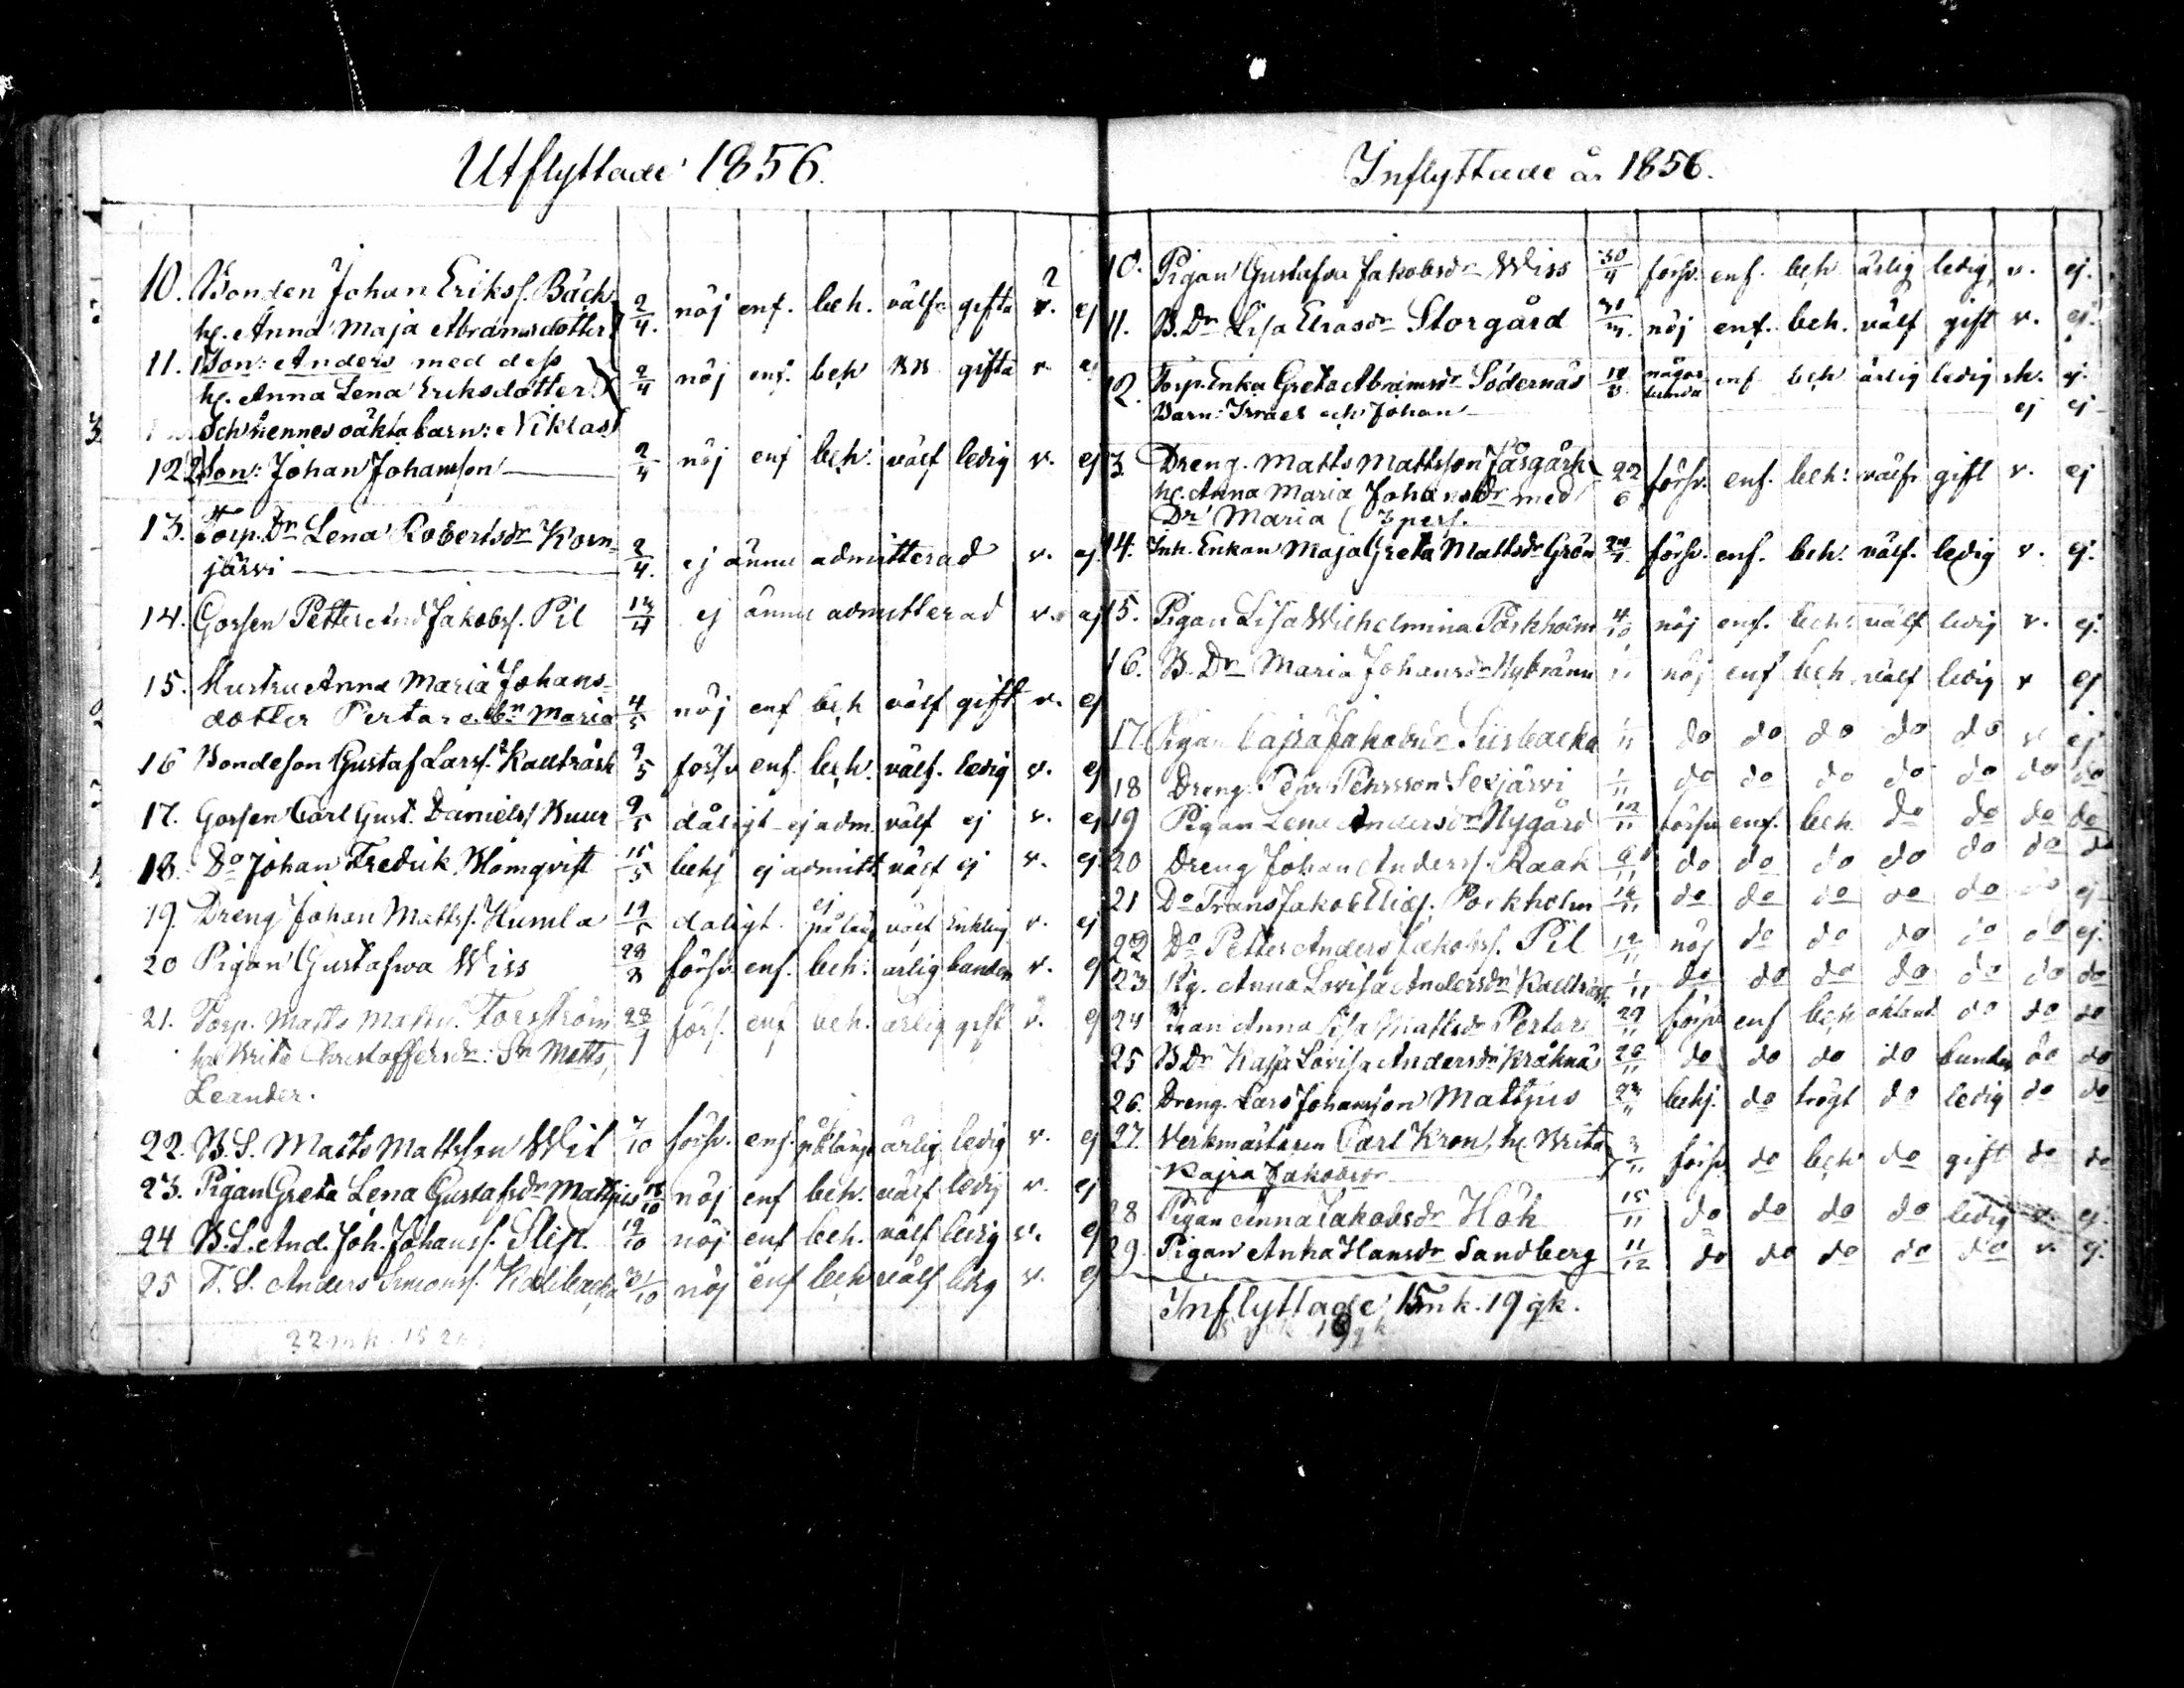 Utflyttade 1856.
10. Bonden Johan Erikss. Bäck
hu. Anna Maja Abramsdotter 2/4. nöj enf. beh. välfr gifta v. ej
11. 1 Son: Anders med dess
hu. Anna Lena Eriksdotter 2/4 nöj enf. beh gifta v. ej
Och hennes oäkta barn: Niklas
12 2 Son: Johan Johansson 2/4 nöj enf beh. välf ledig v. ej
13. Torp. Dr Lena Robertsdr Korn-
järvi 2/4. ej ännu admitterad v. ej.
14. Gossen Petter And Jakobss. Pil 13/4 ej ännu admitterad v. ej
15. Hustru Anna Maria Johans-
dotter Pertar o. bn Maria 4/5 nöj enf beh välf gift v. ej
16 Bondeson Gustaf Larss. Kalltråsk 9/5 försv enf. beh. välf. ledig v. ej
17. Gossen Carl Gust. Danielss Buur 9/5 dåligt ej adm. välf ej v. ej
18. Do Johan Fredrik Blomqvist 15/5 behj ej admitt välf ej v. ej.
19. Dreng Johan Mattss. Humla 19/5 daligt. ej på läng välf Enkling v. ej
20 Pigan Gustafwa Wiss 28/8 försv. enf. beh. ärlig bunden v. ej
21. Torp. Matts Matss. Forsström 28/9 förs. enf beh. ärlig gift v. ej
hu Brita Christoffersdr: Sn Matts,
Leander.
22. B. S. Matts Mattsson Wit 7/10 försv. enf. på länge ärlig ledig v. ej
23. Pigan Greta Lena Gustafsdr Mattjus 18/10 nöj enf beh. välf ledig v. ej
24 B. S. And. Joh. Johanss. Slip. 19/10 nöj enf beh. välf ledig v. ej
25 T. S. Anders Simonss. Kallbacka 31/10 nöj enf beh välf ledig v. ej
22 mk. 15
Inflyttade år 1856.
10. Pigan Gustafva Jakobsdr Wiss 30/4 försv. enf. beh ärlig ledig v. ej.
11. B. Dr Lisa Eliasdr Storgård nöj enf. beh. välf gift v. ej.
12. Torp. Enka Greta Abramsdr Södernäs någor lunda enf beh ärlig ledig ej.
Barn: Israel och Johan ej ej
3 Dreng. Matts Mattsson Påsgårk 22/6 försv. enf. beh: välfr gift v. ej
hu. Anna Maria Johansdr med
Dr Maria (3 pers.
14. Inh. Enkan Maja Greta Mattsdr Grön försv. enf. beh. välf. ledig v. ej.
15. Pigan Lisa Wilhelmina Pörkholm 4/10 nöj enf. beh. välf ledig v. ej.
16. B. Dr Maria Johansdr Nybränn 1/11 nöj enf beh välf ledig v ej
17 Pigan Cajsa Jakobsdr Siisbacka 1/11 do do do do do v ej
18 Dreng Pehr Pehrsson Sexjärvi 1/11 do do do do do do do
19 Pigan Lena Andersdr Nygård 12/11 försv enf. beh do do do do
20 Dreng Johan Anderss. Kaak 6/11 do do do do do do do
21 Do Frans Jakob Eliass. Porkholm 16/11 do do do do do do ej
22 Do Petter Anders Jakobss. Pil 12/11 nöj do do do do do ej.
23 Pig. Anna Lovisa Andersdr Kalltråsk 1/11 do do do do do do do
24 Pigan Anna Lisa Mattsdr Pertar 29/11 försv enf beh aktad do do do
25 B Dr Kajsa Lovisa Andersdr Kråknäs 26/11 do do do do bunden do do
26. Dreng. Lars Johansson Mattjus 23/11 behj. do trögt do ledig do do
27. Verkmästaren Carl Kron, hu Brita 3/11 försv do beh do gift do do
Kajsa Jakobsdr
28 Pigan Anna Jakobsdr Hök 15/11 do do do do ledig v. ej.
29. Pigan Anna Hansdr Sandberg 11/12 do do do do do v. ej.
Inflyttade 15 mk. 19 qk.